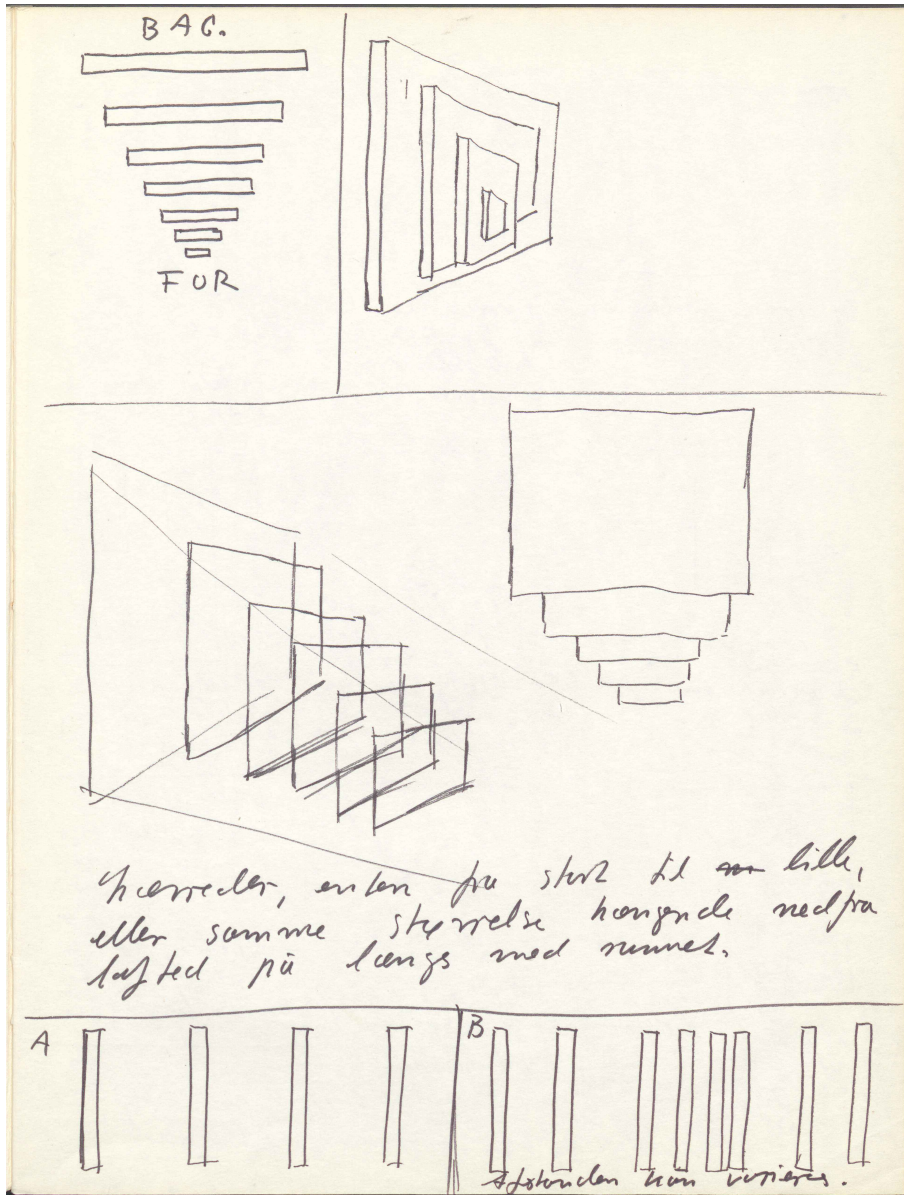 BAG.
FOR
Lærreder, enten fra stort til lille,
eller samme størrelse hængende ned fra
lofted på langs med rummet.
A
B
Afstanden kan varieres.